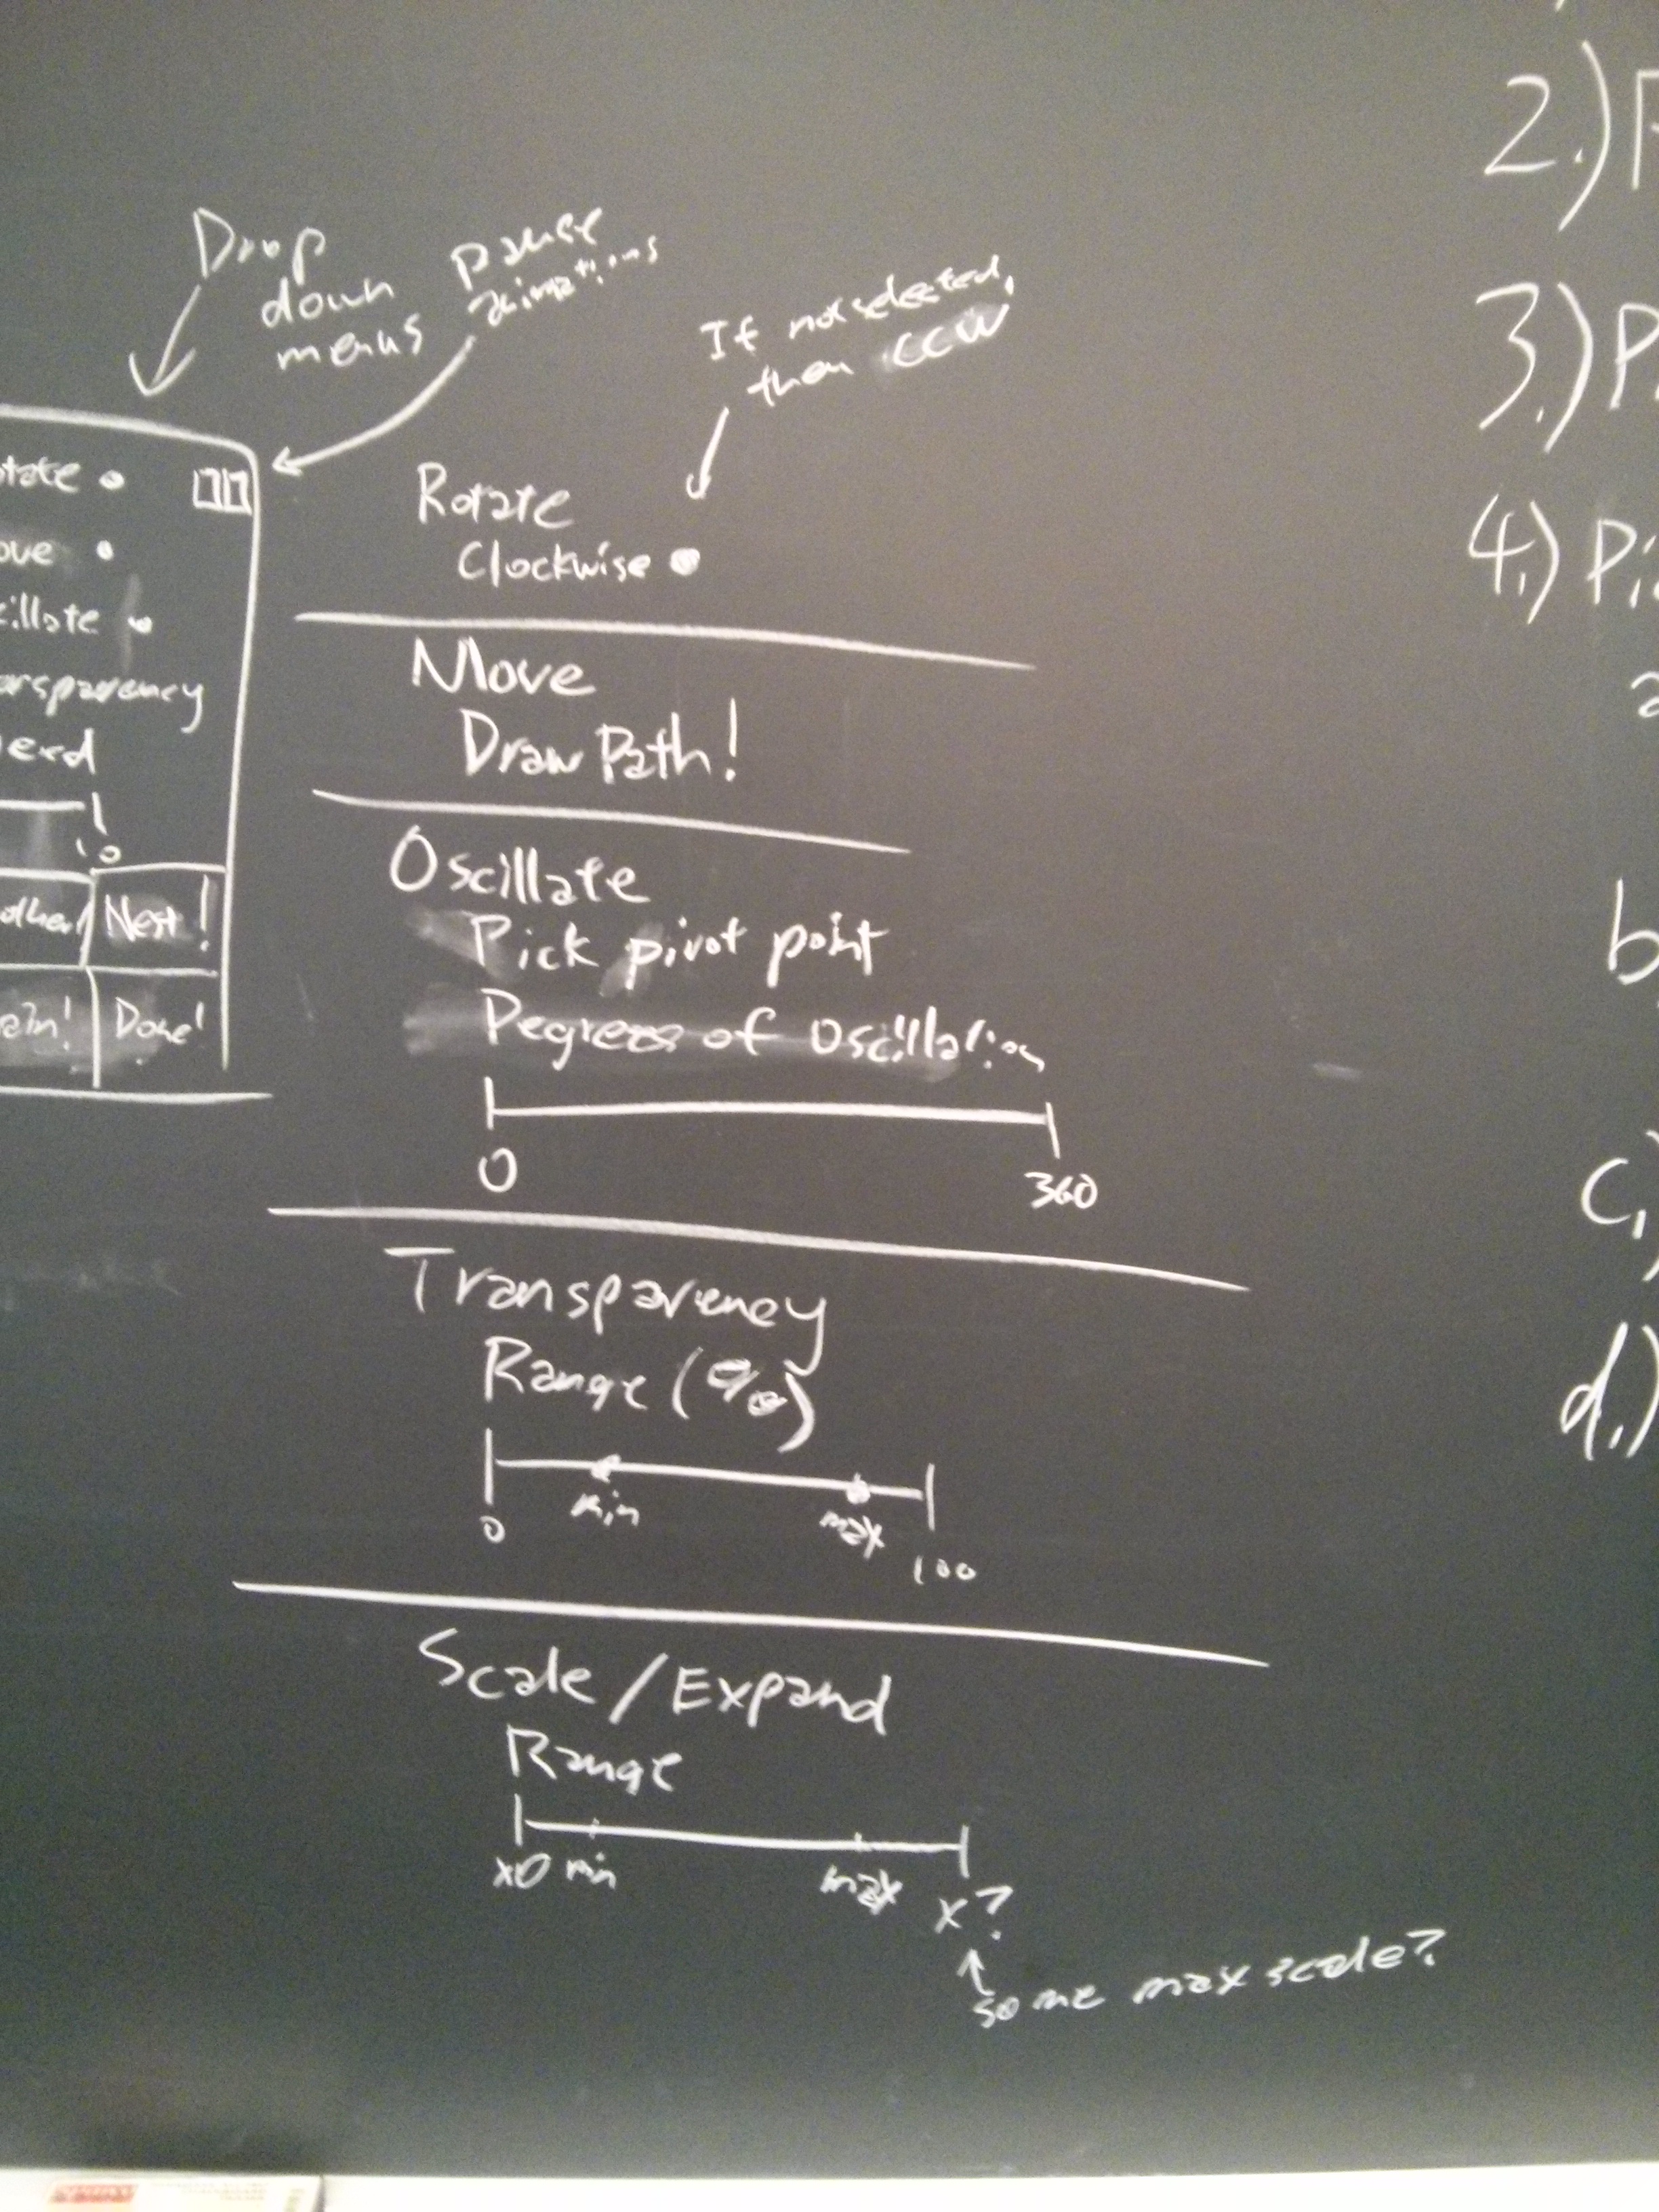 Drop
down
menus
pause
animations
If not selected,
then CCW
otate
ove
cillate
ansparency
eed
10
Next!
ain!
Done!
Rotate
Clockwise
Move
Draw Path!
Oscillate
Pick pivot point
Degrees of Oscillation
0 360
Transparency
Range (%)
0 min max 100
Scale/Expand
Range
x0 min max x?
some max scale?
2.)
3.) P
4.) Pi
a
b
c.)
d.)